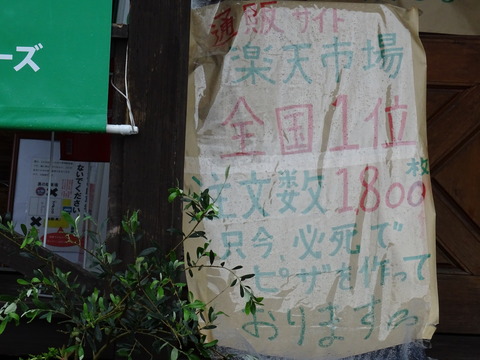 通販サイト
楽天市場
全国1位
注文数1800枚
只今、必死で
ピザを作って
おります
ーズ
ないでください